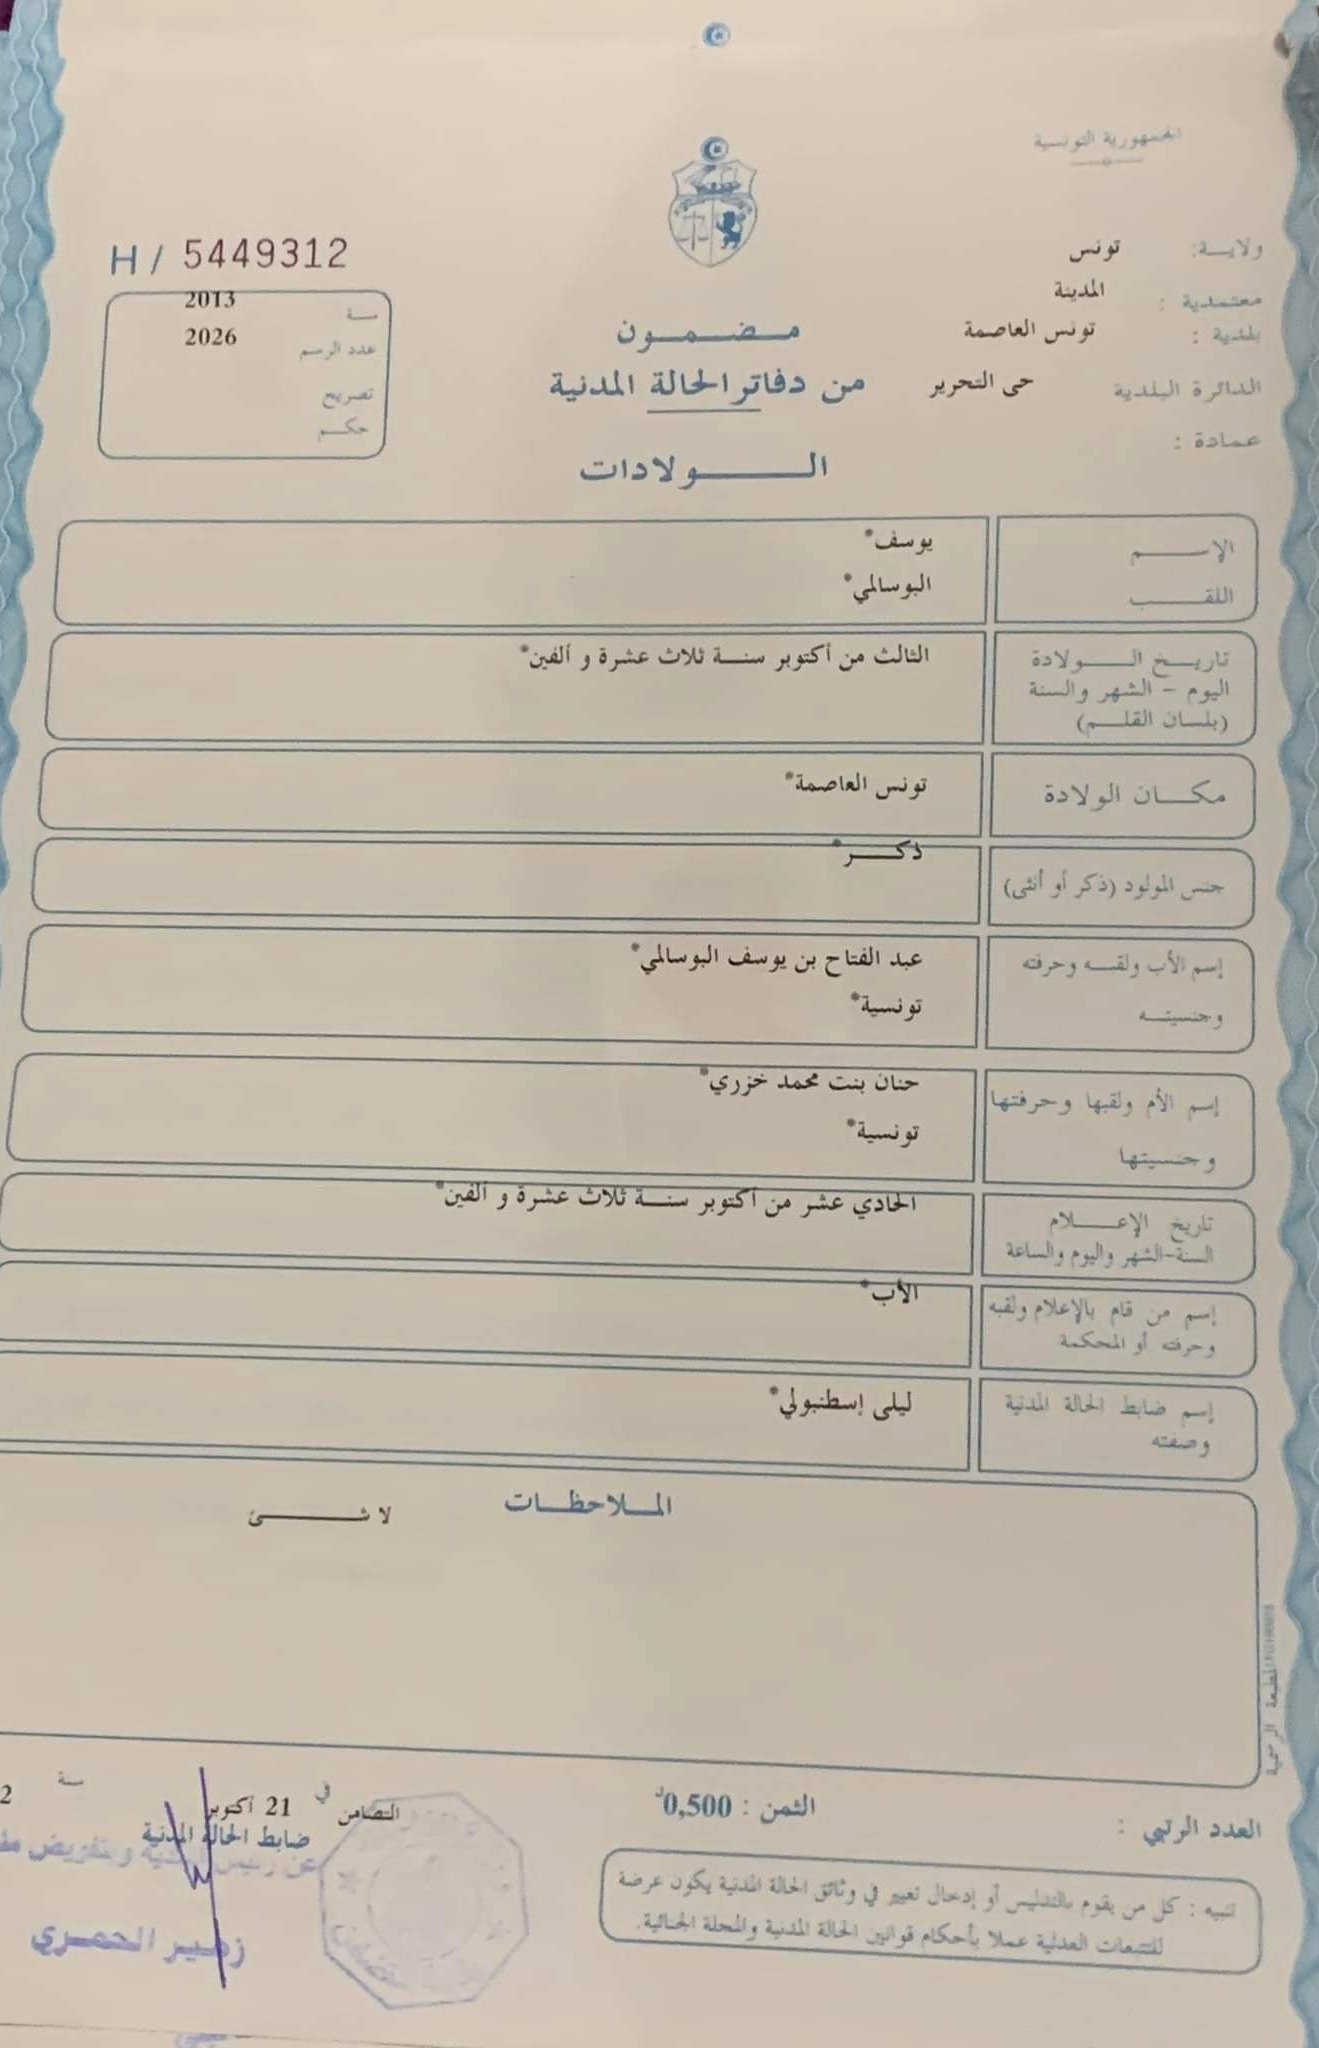 الجمهورية التونسية
ولايـــة: تونس
معتمدية : المدينة
بلدية : تونس العاصمة
الدائرة البلدية حى التحرير
عمادة :
H / 5449312
سنة 2013
عدد الرسم 2026
تصريح
حكم
مـــضـــمـــون
من دفاتر الحالة المدنية
الـــــولادات
الإســـــم يوسف*
اللقـــــب البوسالمي*
تاريـــخ الـــــولادة
اليوم - الشهر والسنة
(بلسان القلـــم)
الثالث من أكتوبر سنـــة ثلاث عشرة و ألفين*
مكـــان الولادة تونس العاصمة*
جنس المولود (ذكر أو أنثى) ذكـــر*
إسم الأب ولقبـــه وحرفته عبد الفتاح بن يوسف البوسالمي*
وجنسيتـــه تونسية*
إسم الأم ولقبها وحرفتها حنان بنت محمد خزري*
وجنسيتها تونسية*
تاريخ الإعـــــلام
السنة-الشهر واليوم والساعة
الحادي عشر من أكتوبر سنـــة ثلاث عشرة و ألفين*
إسم من قام بالإعلام ولقبه
وحرفته أو المحكمة
الأب*
إسم ضابط الحالة المدنية
وصفته
ليلى إسطنبولي*
المـــلاحظـــات
لا شـــــئ
المطبعة الرسمية
العدد الرتبي :
الثمن : 0,500د
التضامن في 21 أكتوبر سنة 2
ضابط الحالة المدنية
عن رئيس وبتفويض
زهير الحمري
تنبيه : كل من يقوم بالتدليس أو إدخال تغيير في وثائق الحالة المدنية يكون عرضة
للتتبعات العدلية عملا بأحكام قوانين الحالة المدنية والمجلة الجنائية.